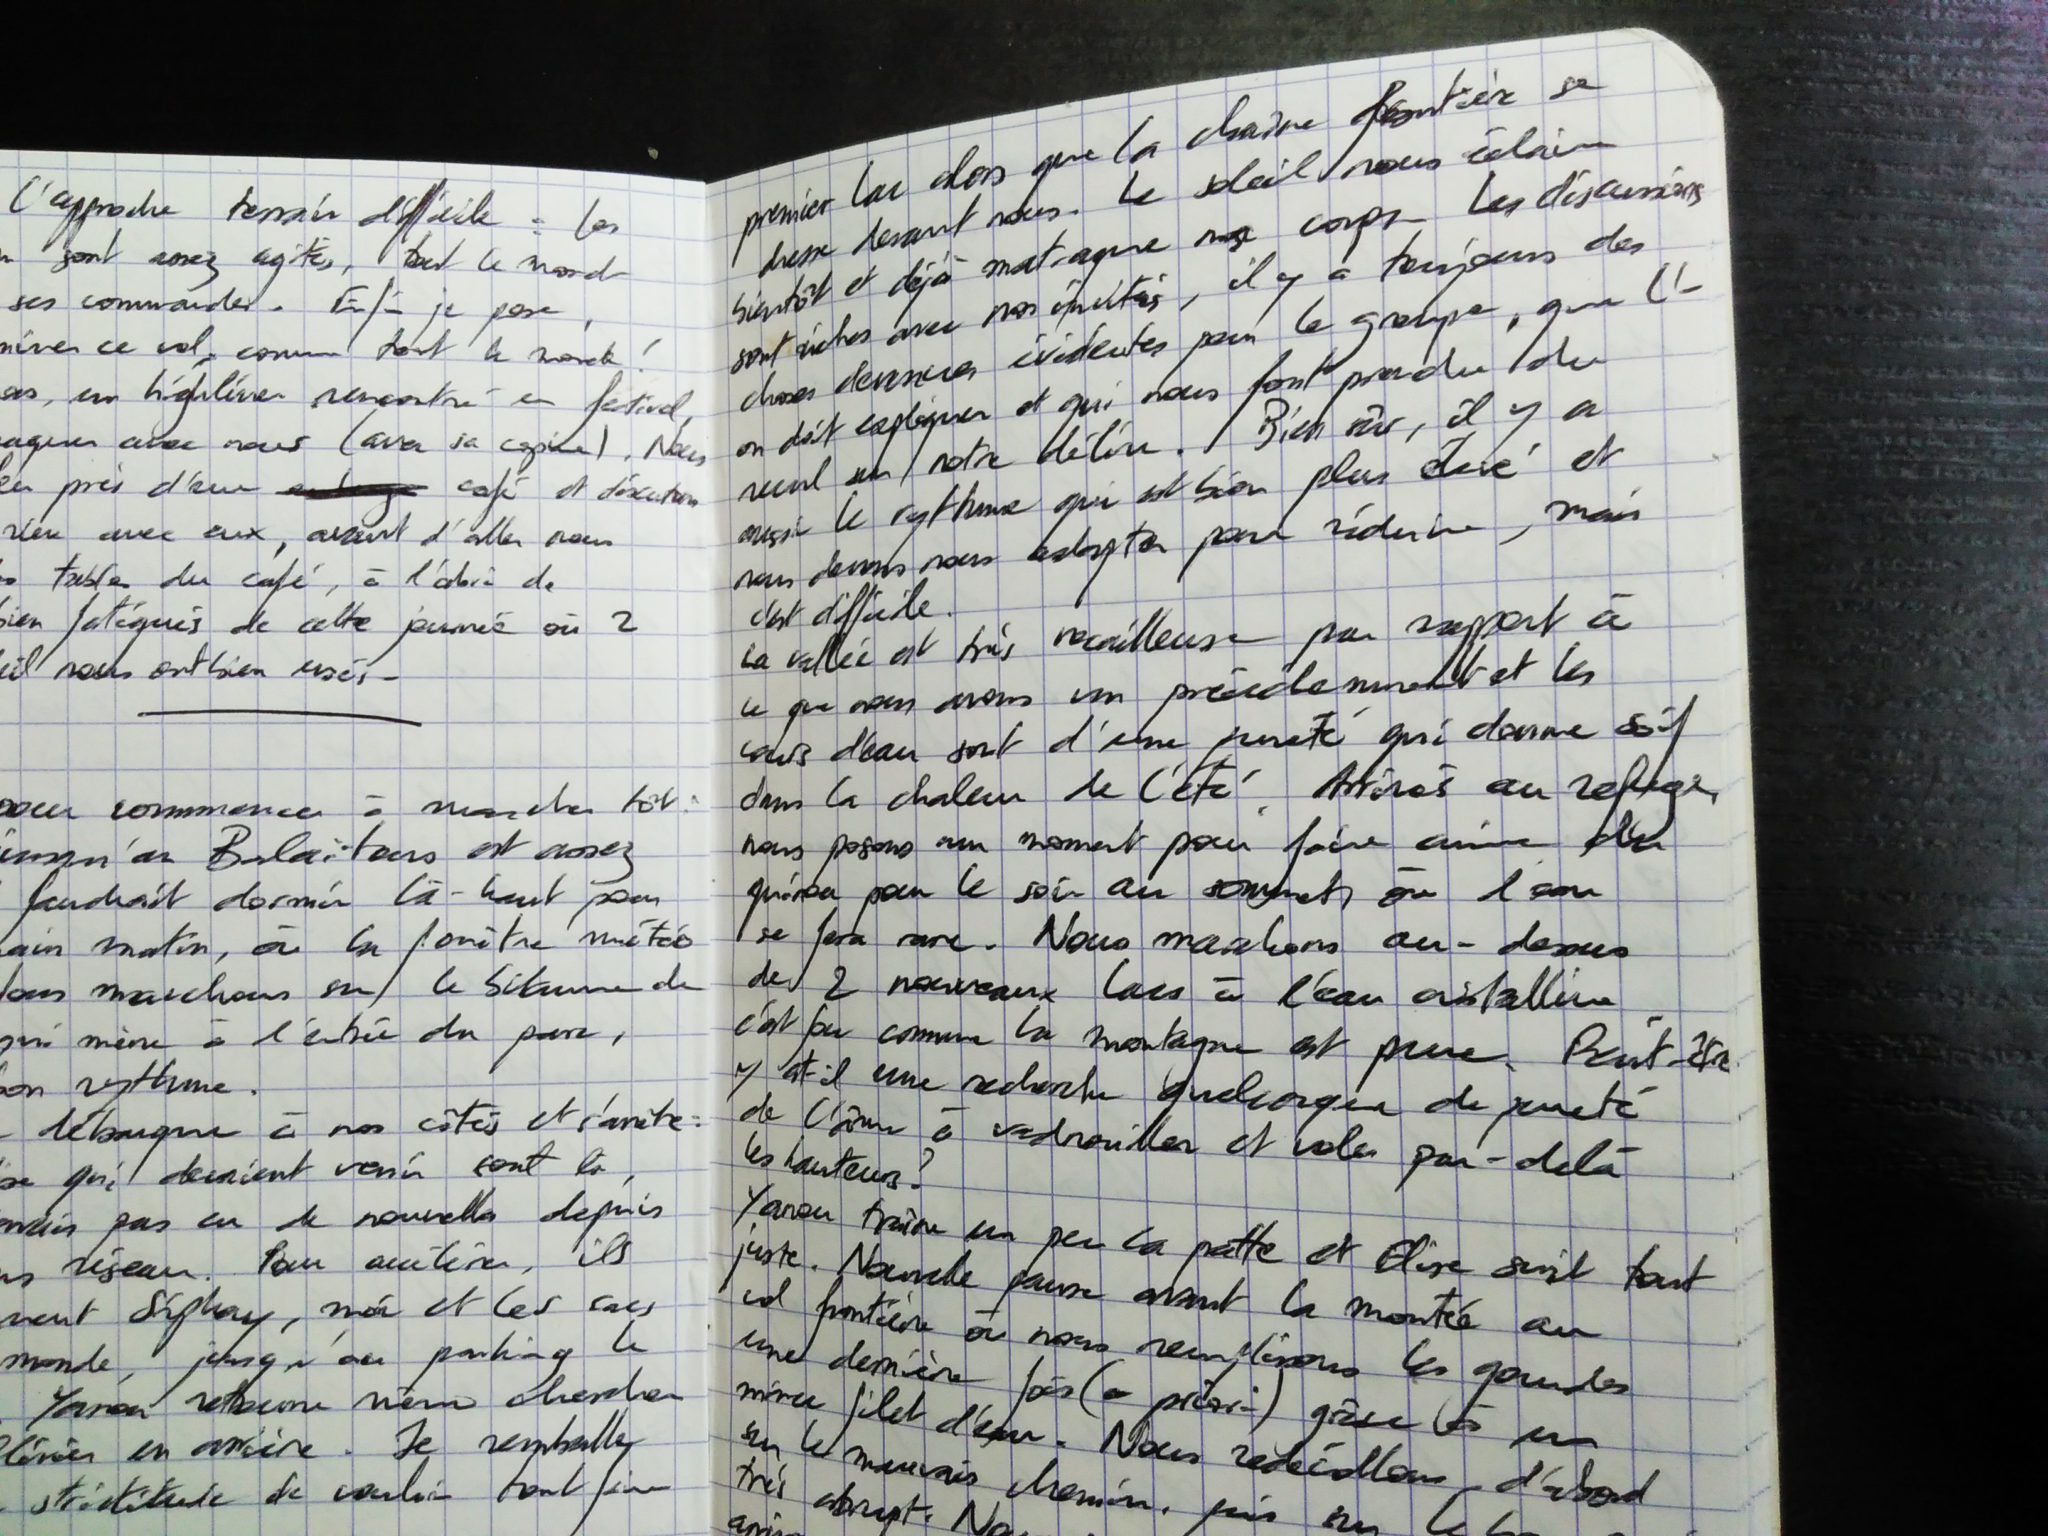 L'approche terrain difficile : les
sont assez agités, tout le monde
ses commandes. Enfin je pose,
ce vol, comme tout le monde !
un highliner rencontré en festival,
avec nous (avec sa copine). Nous
près d'un café et discutons
avec eux, avant d'aller nous
tables du café, à l'abri de
bien fatigués de cette journée où 2
nous ont bien usés.
pour commencer à marcher tôt :
jusqu'au Balaïtous est assez
faudrait dormir là-haut pour
matin, où la fenêtre météo
marchons sur le bitume de
qui mène à l'entrée du parc,
bon rythme.
débarque à nos côtés et s'arrête :
qui devaient venir sont là,
pas eu de nouvelles depuis
réseau. Pour accélérer, ils
Stéphay, moi et les sacs
monde, jusqu'au parking le
Yanou retourne même chercher
en arrière. Je remballe
de vouloir tout faire
premier lac alors que la chaîne frontière se
dresse devant nous. Le soleil nous éclaire
bientôt et déjà matraque nos corps. Les discussions
sont riches avec nos invités, il y a toujours des
choses devenues évidentes pour le groupe, que l'-
on doit expliquer et qui nous font prendre du
recul sur notre délire. Bien sûr, il y a
aussi le rythme qui est bien plus élevé et
nous devons nous adapter pour réduire, mais
c'est difficile.
La vallée est très rocailleuse par rapport à
ce que nous avons vu précédemment et les
cours d'eau sont d'une pureté qui donne soif
dans la chaleur de l'été. Arrivés au refuge,
nous posons un moment pour faire cuire du
quinoa pour le soir au sommet, où l'eau
se fera rare. Nous marchons au-dessus
de 2 nouveaux lacs à l'eau cristalline
c'est fou comme la montagne est pure. Peut-être
y at-il une recherche quelconque de pureté
de l'âme à vadrouiller et voler par-delà
les hauteurs ?
Yanou traîne un peu la patte et Elise suit tout
juste. Nouvelle pause avant la montée au
col frontière où nous remplissons les gourdes
une dernière fois (a priori) grâce à un
mince filet d'eau. Nous redécollons d'abord
sur le mauvais chemin, puis sur le
très abrupt.